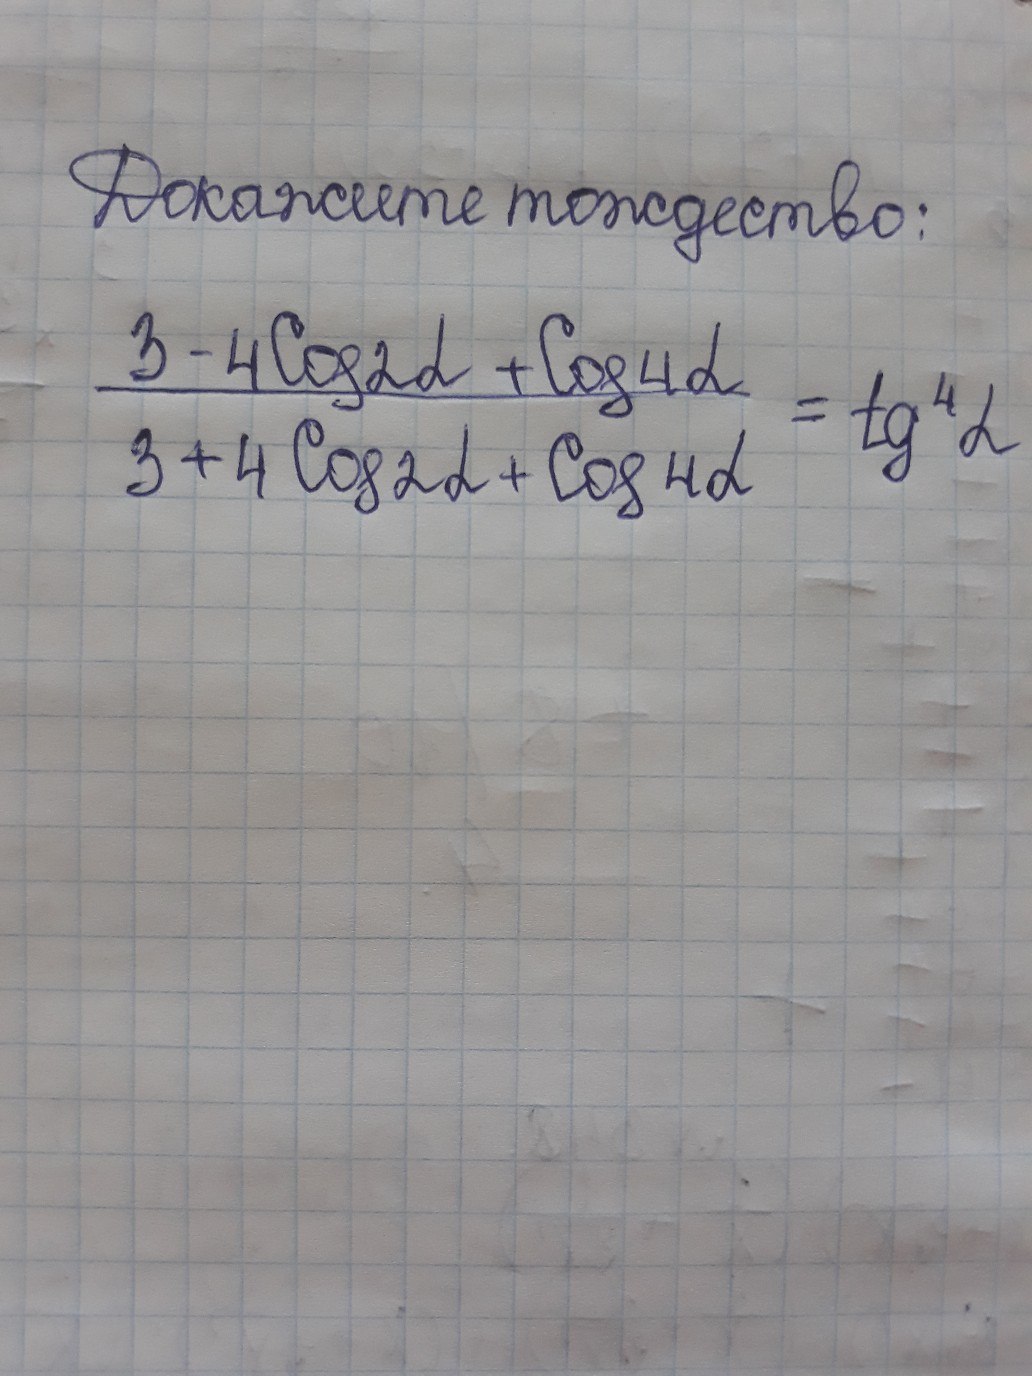 Докажите тождество:
3 - 4 Cos2α + Cos4α
3 + 4 Cos2α + Cos4α
= tg⁴α